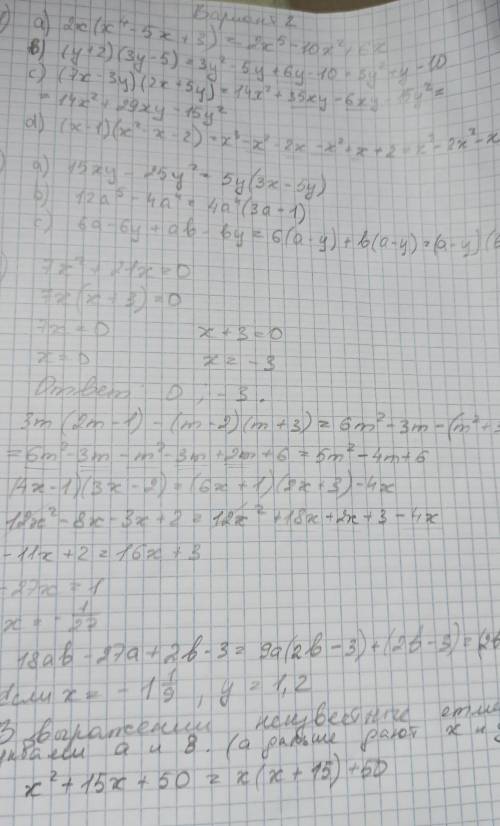 Вариант 2
a) 2x(x⁴-5x+3) = 2x⁵-10x²+6x
b) (y+2)(3y-5) = 3y²-5y+6y-10 = 3y²+y-10
c) (7x-3y)(2x+5y) = 14x²+35xy-6xy-15y² =
= 14x²+29xy-15y²
d) (x-1)(x²-x-2) = x³-x²-2x-x²+x+2 = x³-2x²-x
a) 15xy-25y² = 5y(3x-5y)
b) 12a⁵-4a⁴ = 4a⁴(3a-1)
6a-6y+ab-by = 6(a-y)+b(a-y) = (a-y)(6
7x²+21x=0
7x(x+3)=0
7x=0 x+3=0
x=0 x=-3
Ответ: 0; -3.
3m(2m-1)-(m-2)(m+3) = 6m²-3m-(m²+3
= 6m²-3m-m²-3m+2m+6 = 5m²-4m+6
(4x-1)(3x-2) = (6x+1)(2x+3)-4x
12x²-8x-3x+2 = 12x²+18x+2x+3-4x
-11x+2 = 16x+3
-27x=1
x=-1/27
18ab-27a+2b-3 = 9a(2b-3)+(2b-3) = (2b
если x = -1 1/9, y = 1,2
В выражении неизвестные
буквами a и в. (а дальше дают x и
x²+15x+50 = x(x+15)+50